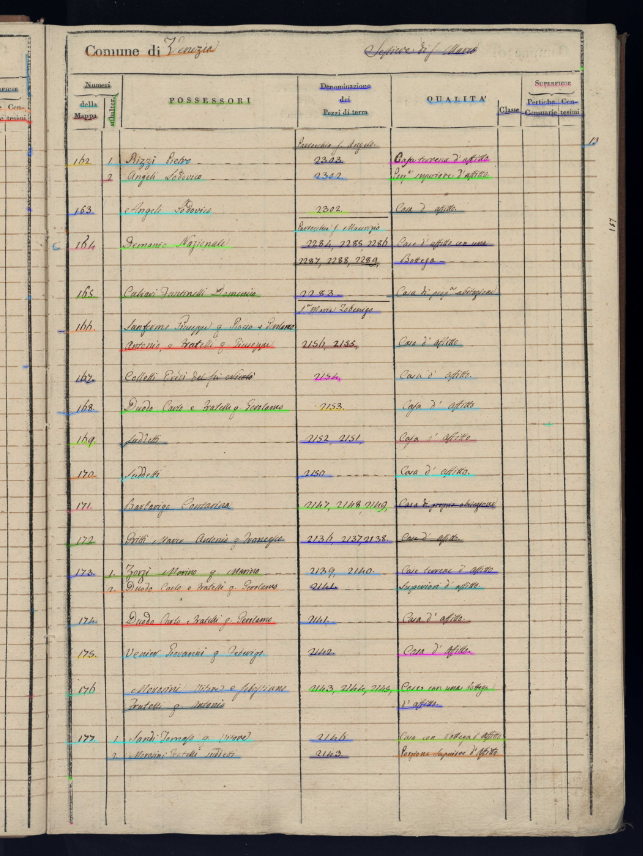 Comune di Venezia Sestiere di S. Marco
Numeri della Mappa subalterni POSSESSORI Denominazione dei Pezzi di terra QUALITA' Classe Superficie Pertiche Censuarie Centesimi
13
157
Parrochia S. Angelo
162 1 Rizzi Pietro 2303 terrena d'affitto
2 Angeli Lodovico 2302 superiore d'affitto
163 Angeli Lodovico 2302 Casa d'affitto
Parrochia S. Maurizio
164 Demanio Nazionale 2284, 2285, 2286 Casa d'affitto con una
2287, 2288, 2289, Bottega
165 Domenico 2283 Casa di prop.a abitazione
S.a Maria Zobenigo
166 Sanfermo Giuseppe q. Rocco e Girolamo
Antonio, e Fratelli q. Giuseppe 2156, 2155, Casa d'affitto
167 Colletti 2154 Casa d'affitto.
168 Duodo Carlo e Fratelli q. Girolamo 2153 Casa d'affitto
169 Suddetti 2152, 2151, Casa d'affitto
170 Suddetti 2150 Casa d'affitto.
171 Barbarigo Contarina 2147, 2148 2149, Casa di propria abitazione
172 Gritti Antonio q. 2136, 2137, 2138 Casa d'affitto
173 1 Zorzi Marino q. Marino 2139, 2140 Casa terrena d'affitto
2 Duodo Carlo e Fratelli q. Girolamo 2141 Superiore d'affitto
174 Duodo Carlo e Fratelli q. Girolamo 2141 Casa d'affitto
175 Venier Giovanni q. 2142 Casa d'affitto.
176 Morosini e Fratelli q. Antonio 2143, 2144, 2145, Casa con una bottega
d'affitto
177 1 Sandi Tomaso q. 2146 Casa con bottega d'affitto
2 Morosini Fratelli suddetti 2143 Porzione superiore d'affitto